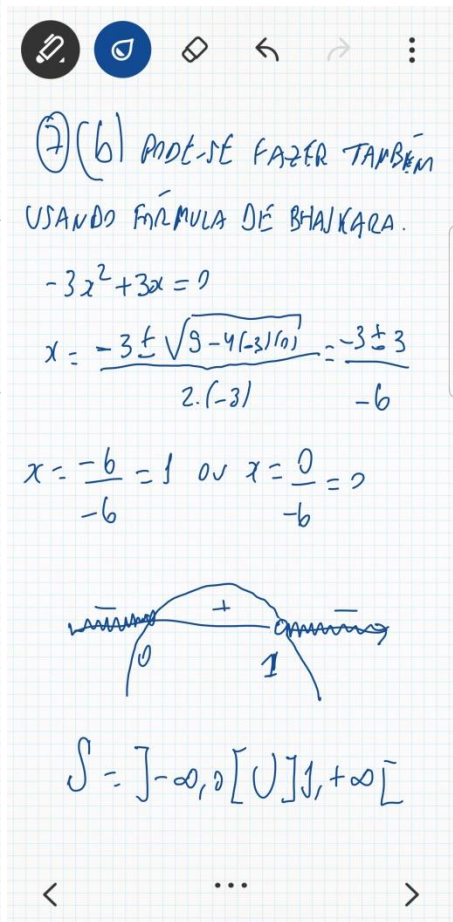 7 (b) PODE-SE FAZER TAMBÉM
USANDO FÓRMULA DE BHASKARA.
-3x² + 3x = 0
x = -3 ± √9 - 4(-3)(0) / 2.(-3) = -3 ± 3 / -6
x = -6 / -6 = 1 OU x = 0 / -6 = 0
- + -
0 1
S = ]-∞, 0[ U ]1, +∞[